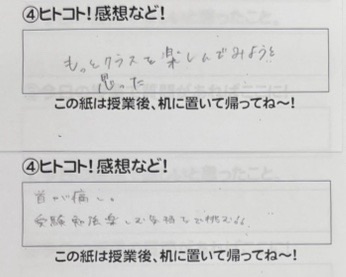 ④ヒトコト！感想など！
もっとクラスを楽しんでみようと
思った
この紙は授業後、机に置いて帰ってね〜！
④ヒトコト！感想など！
首が痛い。
受験勉強楽しむ気持ちで挑む
この紙は授業後、机に置いて帰ってね〜！